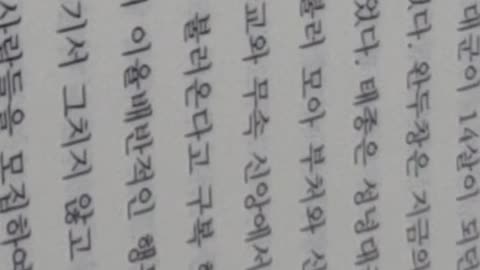 대군이 14살이 되던
었다. 완두창은 지금의
었다. 태종은 성녕대
불러 모아 부처와 신
교와 무속 신앙에서
불러온다고 구복
이율배반적인
기서 그치지 않고
사람들을 모집하여